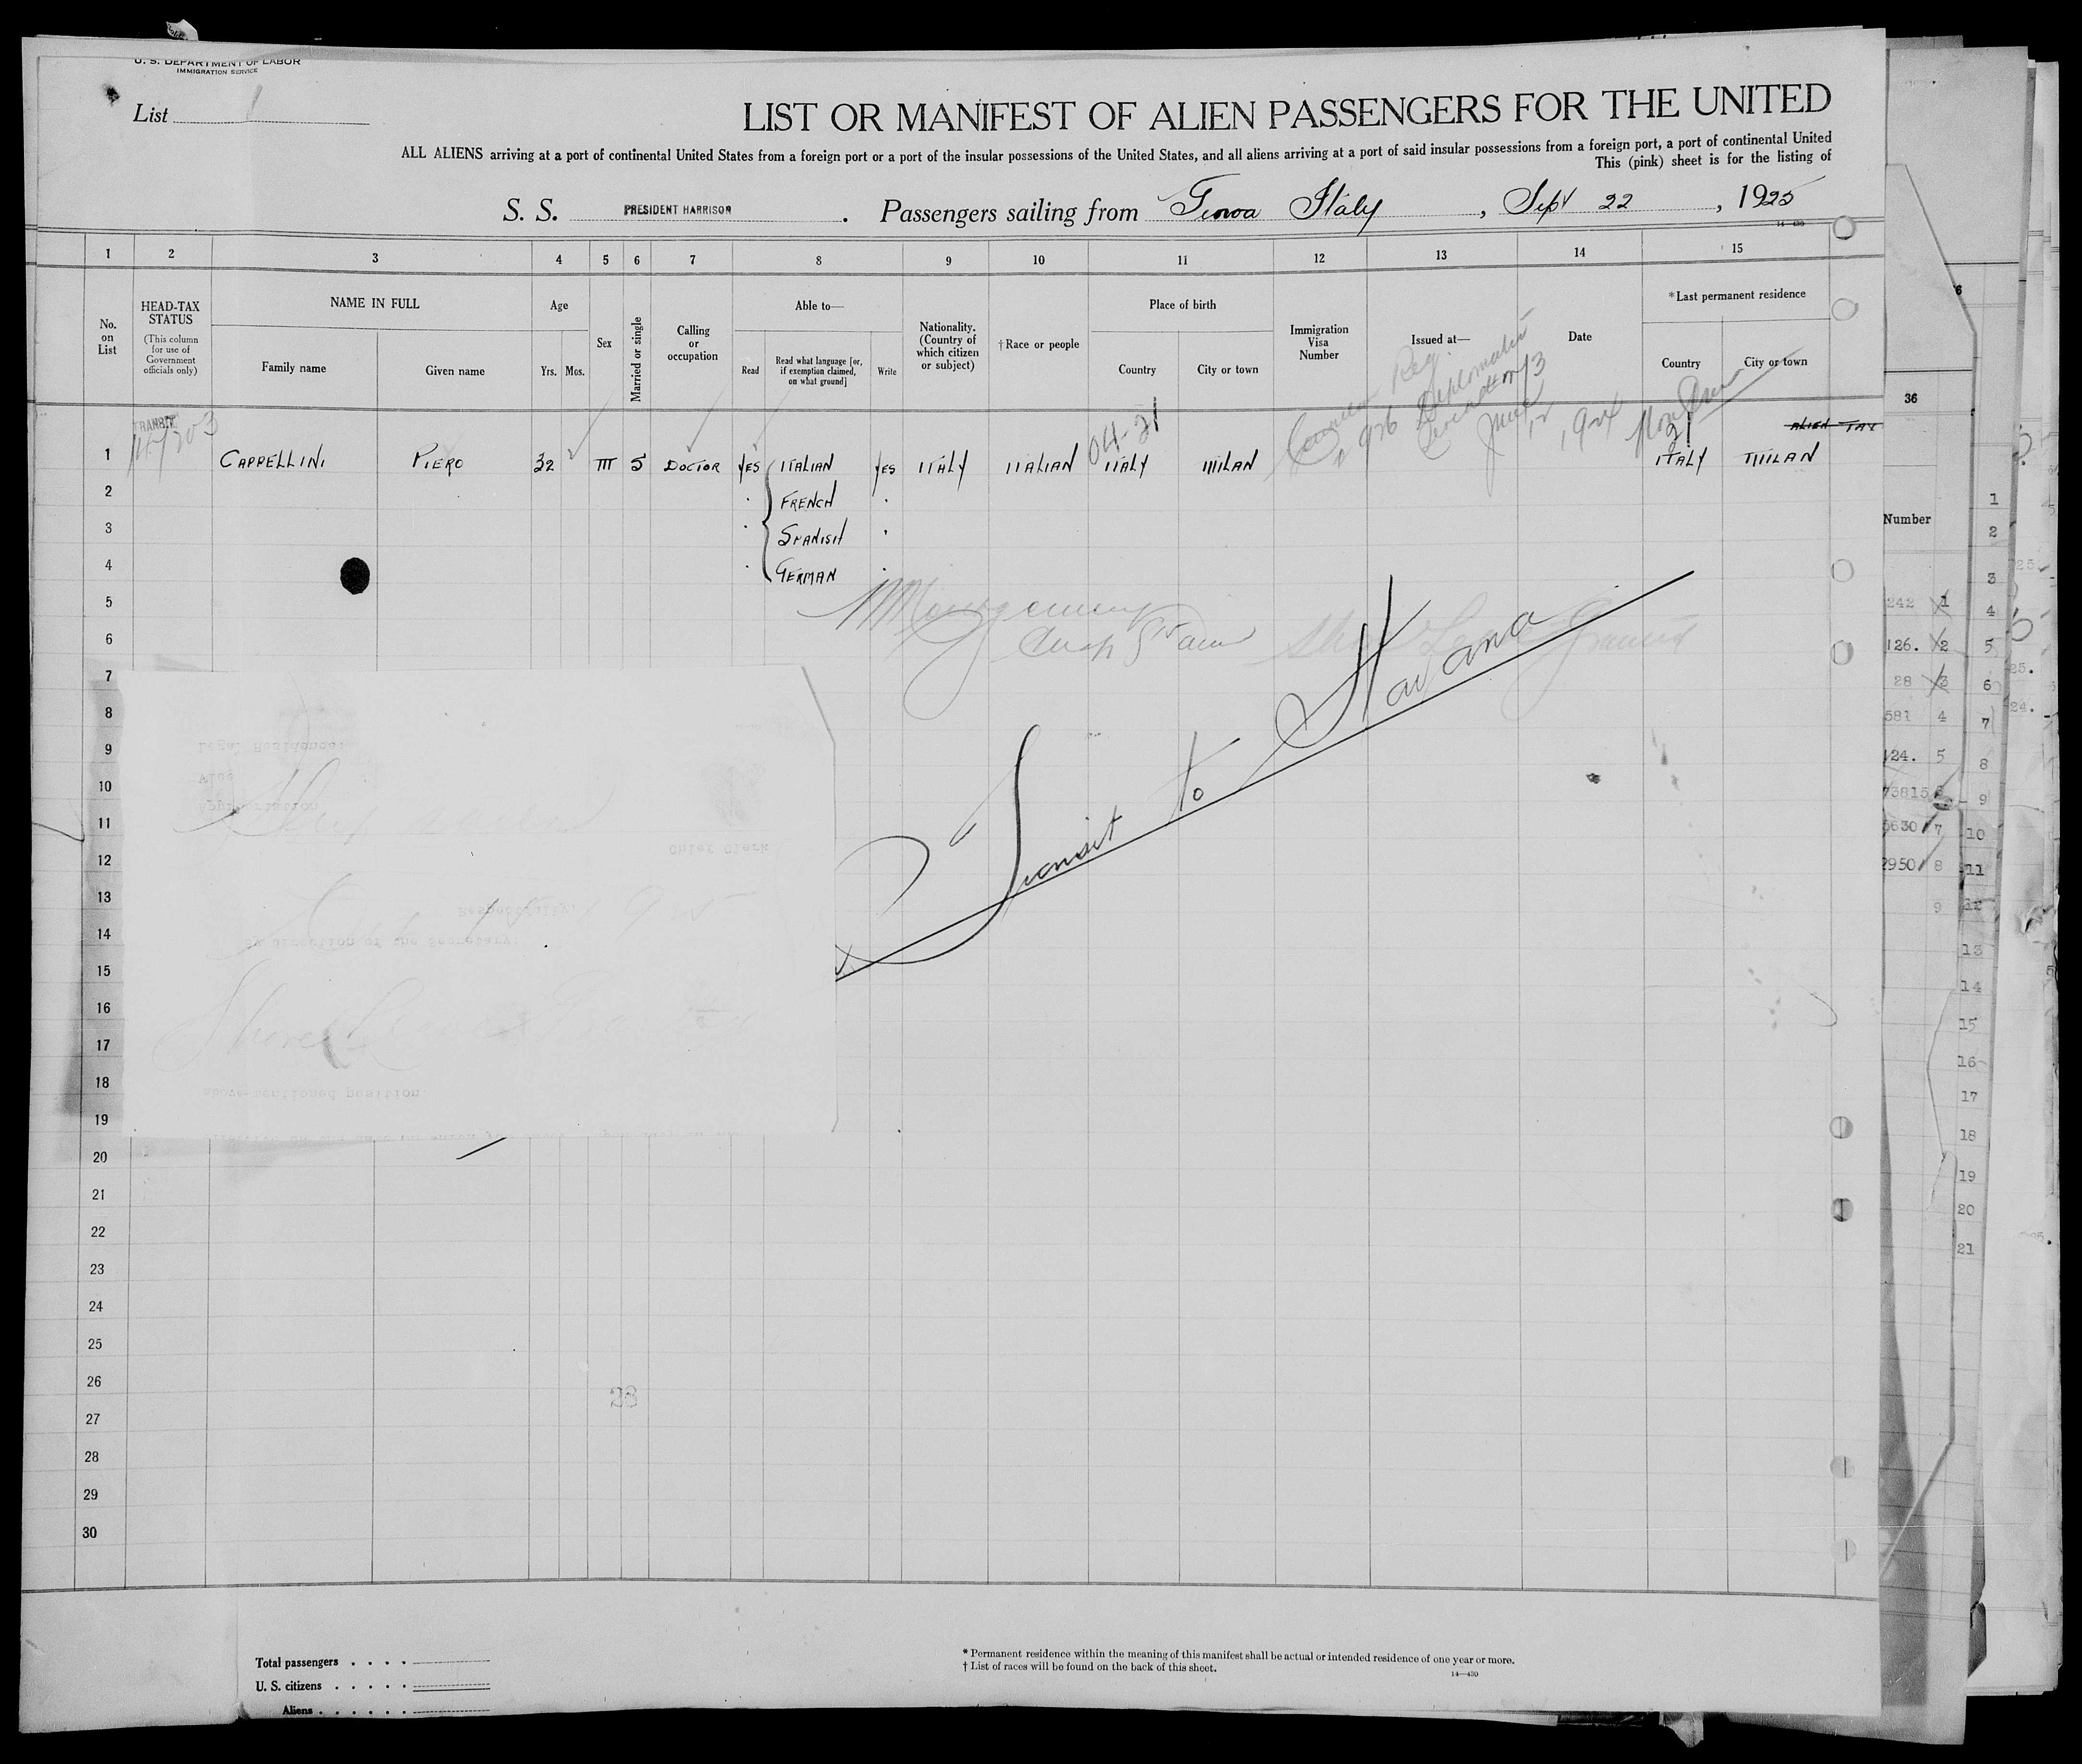 U. S. DEPARTMENT OF LABOR
IMMIGRATION SERVICE
List 1
LIST OR MANIFEST OF ALIEN PASSENGERS FOR THE UNITED
ALL ALIENS arriving at a port of continental United States from a foreign port or a port of the insular possessions of the United States, and all aliens arriving at a port of said insular possessions from a foreign port, a port of continental United
This (pink) sheet is for the listing of
S. S. PRESIDENT HARRISON. Passengers sailing from Genoa Italy, Sept 22, 1925
14-430
1 2 3 4 5 6 7 8 9 10 11 12 13 14 15
No. on List
HEAD-TAX STATUS
(This column for use of Government officials only)
NAME IN FULL
Family name Given name
Age
Yrs. Mos.
Sex
Married or single
Calling or occupation
Able to—
Read Read what language [or, if exemption claimed, on what ground] Write
Nationality. (Country of which citizen or subject)
†Race or people
Place of birth
Country City or town
Immigration Visa Number
Issued at—
Date
*Last permanent residence
Country City or town
TRANSIT
04-21
21
ALIEN TAX
1 CAPPELLINI PIERO 32 M S DOCTOR YES ITALIAN YES ITALY ITALIAN ITALY MILAN ITALY MILAN
2 FRENCH
3 SPANISH
4 GERMAN
5 Montgomery
6
7
8
9
10
11
12
13
14
15
16
17
18
19
20
21
22
23
24
25
26
27
28
29
30
Transit to Havana
Legal Residence:
Appropriation:
Chief Clerk
Respectfully,
By direction of the Secretary:
above-mentioned position.
Total passengers
U. S. citizens
Aliens
* Permanent residence within the meaning of this manifest shall be actual or intended residence of one year or more.
† List of races will be found on the back of this sheet.
14—430
36
Number
242 1
126. 2
28 3
581 4
124. 5
73815
5630 7
2950 8
9
1
2
3
4
5
6
7
8
9
10
11
12
13
14
15
16
17
18
19
20
21